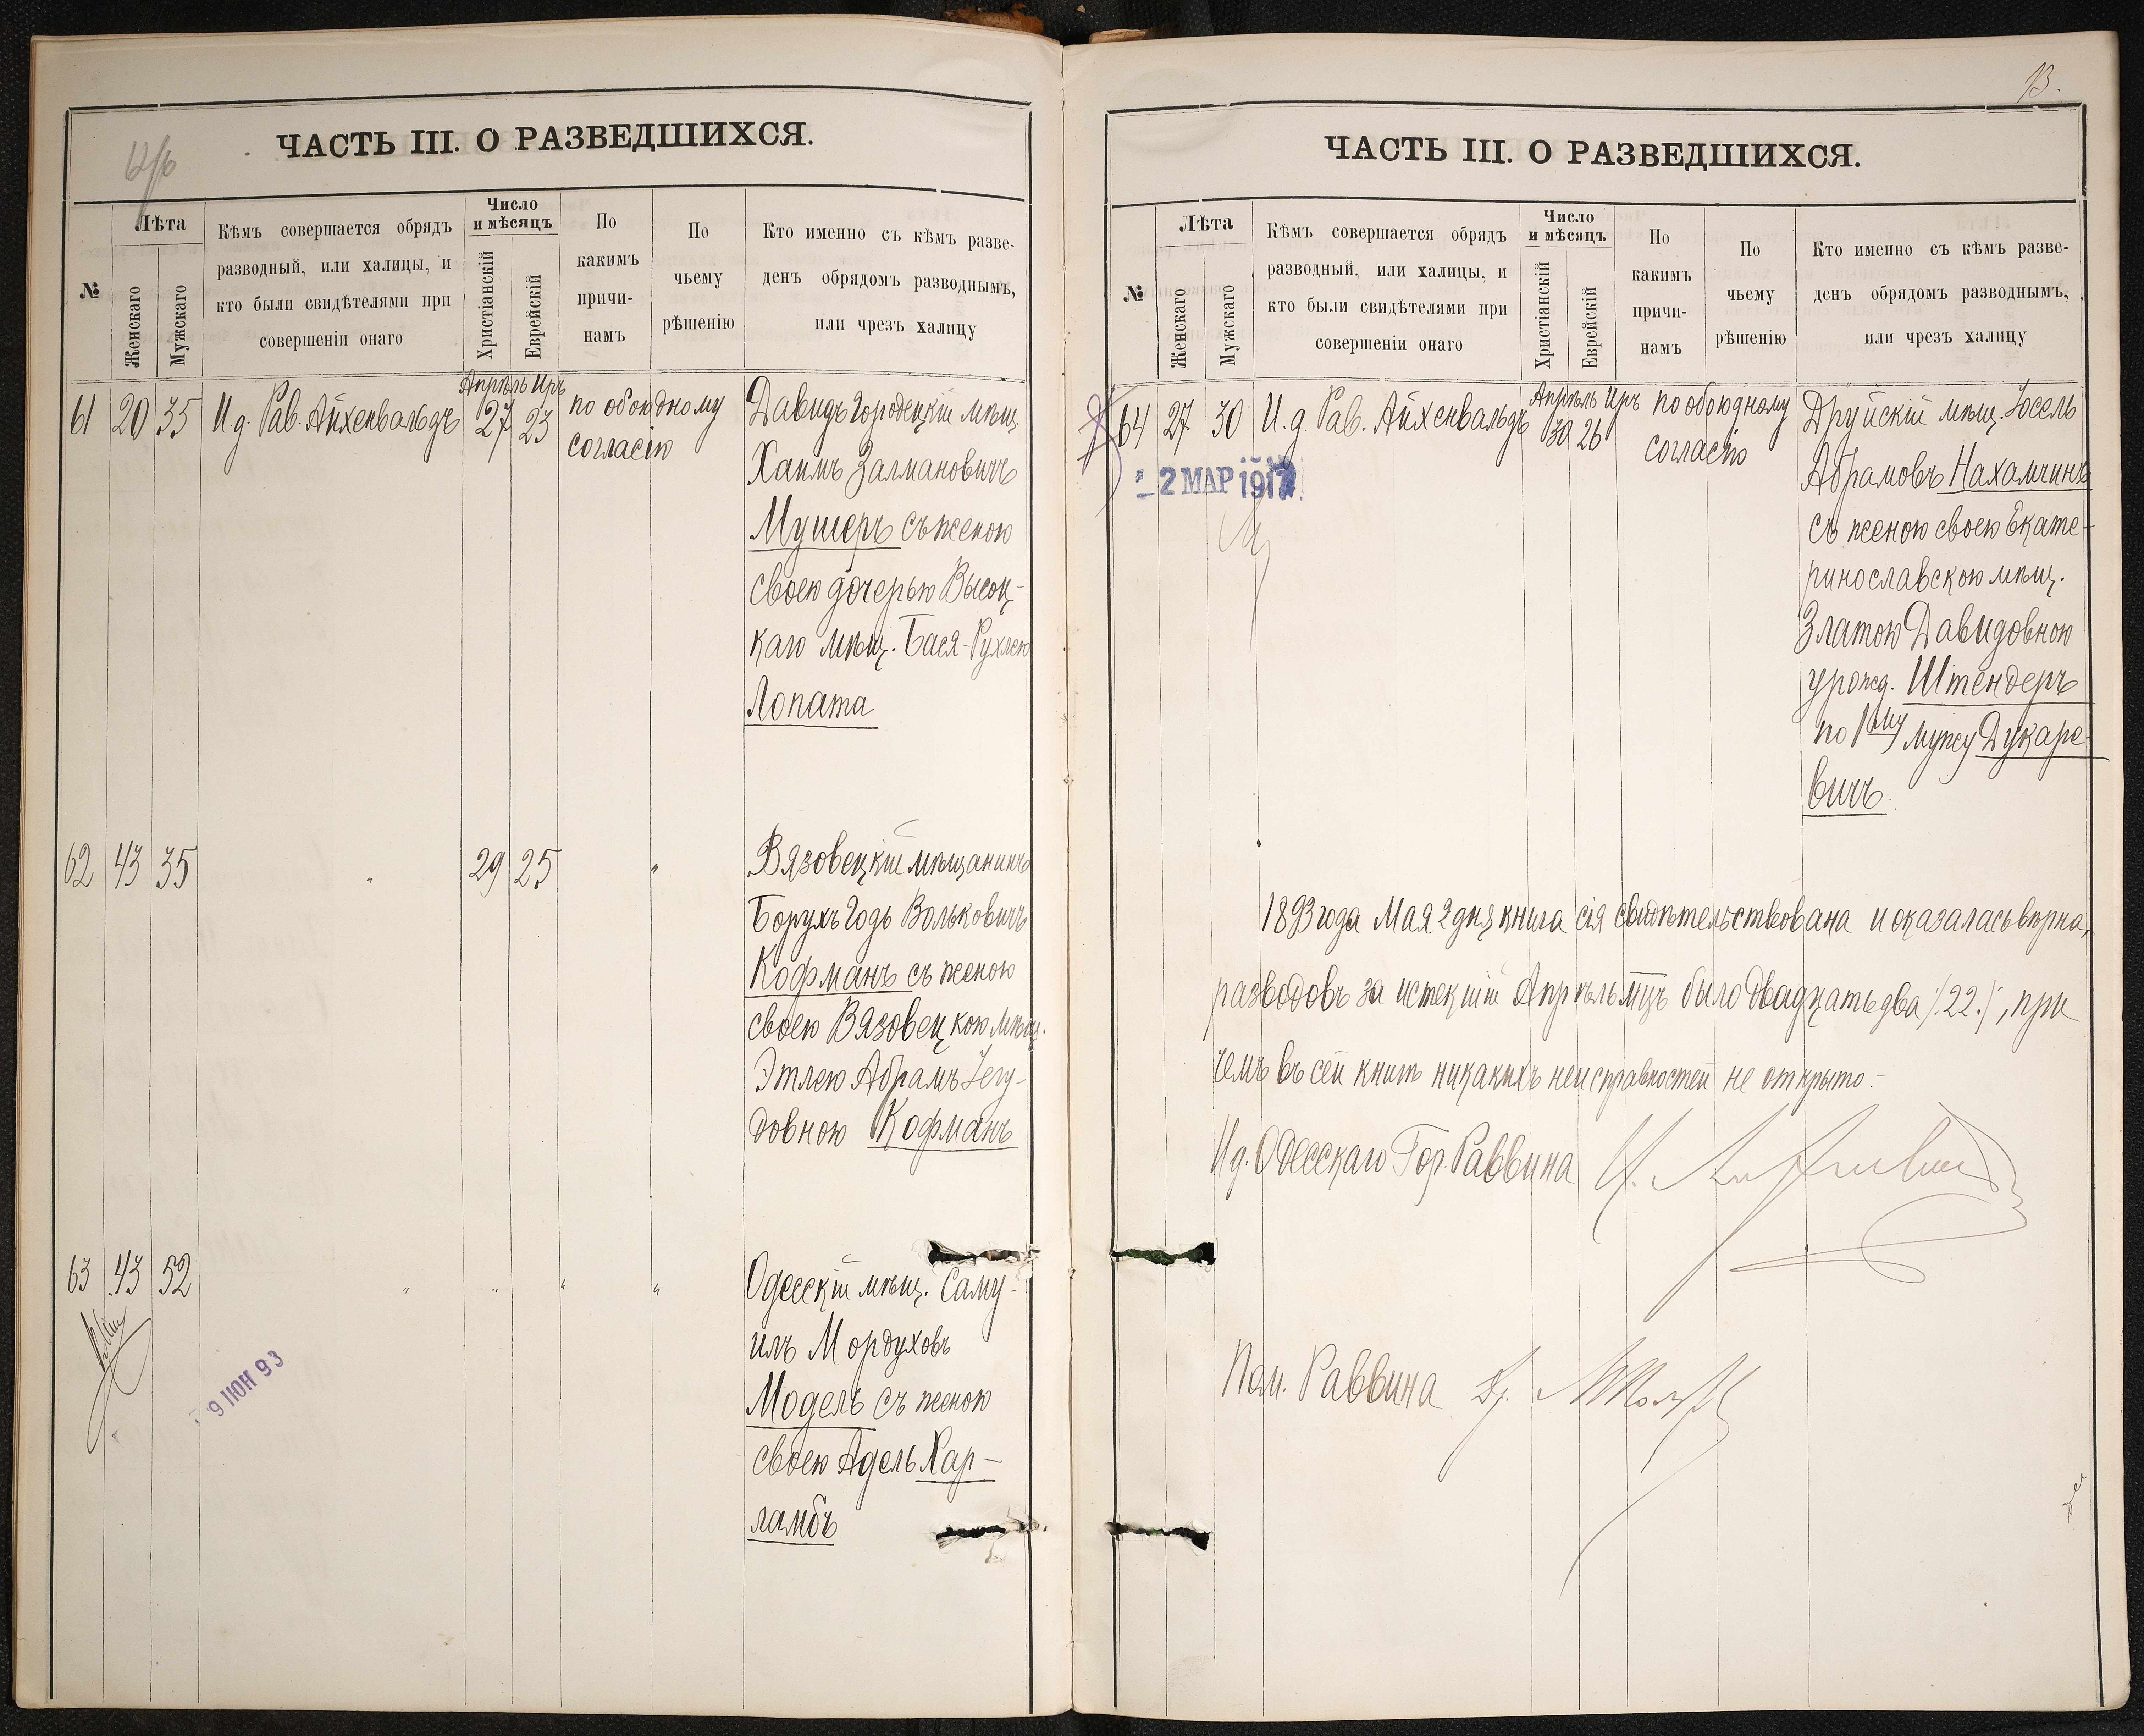 ЧАСТЬ III. О РАЗВЕДШИХСЯ.
№
Лѣта
Женскаго
Мужскаго
Кѣмъ совершается обрядъ
разводный, или халицы, и
кто были свидѣтелями при
совершеніи онаго
Число
и мѣсяцъ
Христіанскій
Еврейскій
По
какимъ
причи-
намъ
По
чьему
рѣшенію
Кто именно съ кѣмъ разве-
денъ обрядомъ разводнымъ,
или чрезъ халицу
Апрѣль Иръ
61 20 35 И.д. Рав. Айхенвальдъ 27 23 по обоюдному
согласію
Давидъ Городецкій мѣщ.
Хаимъ Залмановичъ
Мушеръ съ женою
своею дочерью Высоц-
каго мѣщ. Бася-Рухлею
Лопата
62 43 35 " 29 25 "
Вязовецкій мѣщанинъ
Борухъ Годь Вольковичъ
Кофманъ съ женою
своею Вязовецкою мѣщ.
Этлею Абрамъ Іегу-
довною Кофманъ
63 43 52 " " " "
Одесскій мѣщ. Саму-
илъ Мордуховъ
Модель съ женою
своею Адель Хар-
ламбъ
9 ІЮН 93
13.
ЧАСТЬ III. О РАЗВЕДШИХСЯ.
№
Лѣта
Женскаго
Мужскаго
Кѣмъ совершается обрядъ
разводный, или халицы, и
кто были свидѣтелями при
совершеніи онаго
Число
и мѣсяцъ
Христіанскій
Еврейскій
По
какимъ
причи-
намъ
По
чьему
рѣшенію
Кто именно съ кѣмъ разве-
денъ обрядомъ разводнымъ,
или чрезъ халицу
Апрѣль Иръ
64 27 30 И.д. Рав. Айхенвальдъ 30 26 по обоюдному
согласію
2 МАР 1917
Друйскій мѣщ. Іосель
Абрамовъ Нахамчинъ
съ женою своею Екате-
ринославскою мѣщ.
Златою Давидовною
урожд. Штендеръ
по 1му мужу Дукаре-
вичъ.
1893 года Мая 2 дня книга сія свидѣтельствована и оказалась вѣрна,
разводовъ за истекшій Апрѣль мцъ было двадцать два /.22./, при
чемъ въ сей книгѣ никакихъ неисправностей не открыто.-
И.д. Одесскаго Гор. Раввина
Пом. Раввина